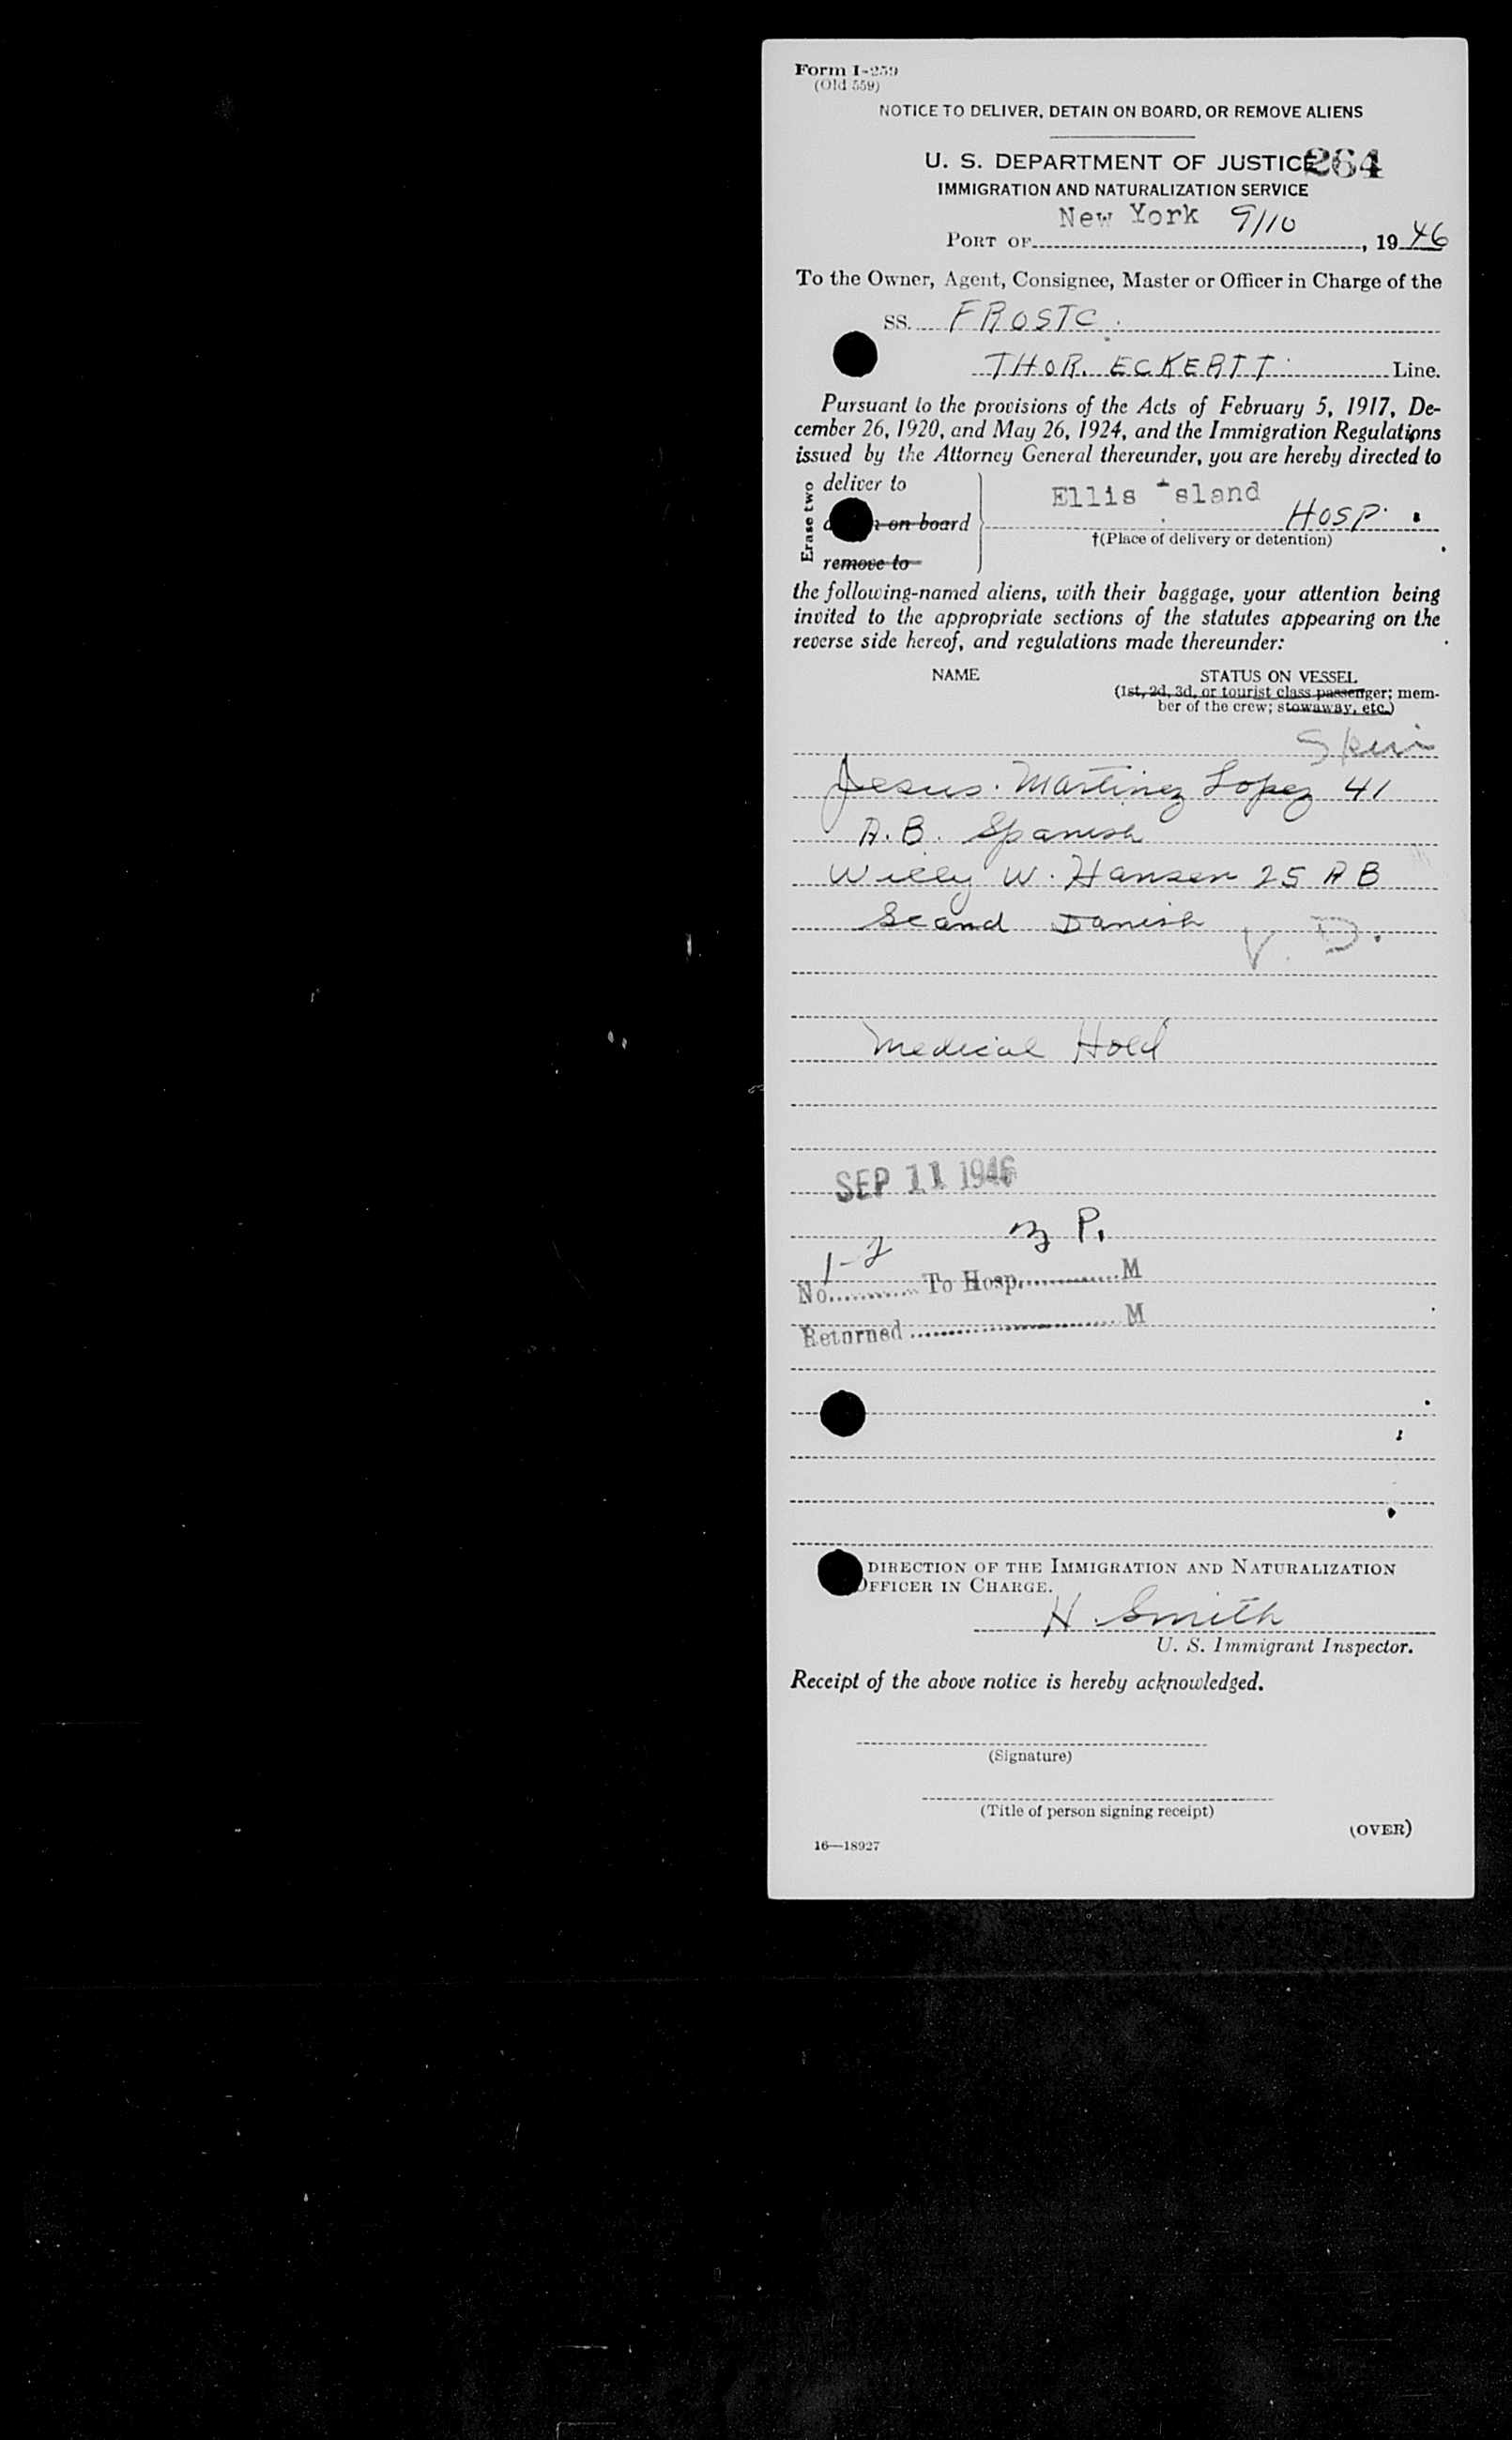 Form I-259
(Old 559)
NOTICE TO DELIVER, DETAIN ON BOARD, OR REMOVE ALIENS
U. S. DEPARTMENT OF JUSTICE 264
IMMIGRATION AND NATURALIZATION SERVICE
New York 9/10
PORT OF , 19 46
To the Owner, Agent, Consignee, Master or Officer in Charge of the
SS. FROSTC.
THOR. ECKERTT Line.
Pursuant to the provisions of the Acts of February 5, 1917, De-
cember 26, 1920, and May 26, 1924, and the Immigration Regulations
issued by the Attorney General thereunder, you are hereby directed to
Erase two
deliver to
Ellis sland
on board
Hosp.
†(Place of delivery or detention)
remove to
the following-named aliens, with their baggage, your attention being
invited to the appropriate sections of the statutes appearing on the
reverse side hereof, and regulations made thereunder:
NAME STATUS ON VESSEL
(1st, 2d, 3d, or tourist class passenger; mem-
ber of the crew; stowaway, etc.)
Skin
Jesus. Martinez Lopez 41
A.B. Spanish
Willy W. Hansen 25 A B
Scand Danish V. D.
Medical Hold
SEP 11 1946
P.
1-2
No. To Hosp. M
Returned M
DIRECTION OF THE IMMIGRATION AND NATURALIZATION
OFFICER IN CHARGE.
H. Smith
U. S. Immigrant Inspector.
Receipt of the above notice is hereby acknowledged.
(Signature)
(Title of person signing receipt)
(OVER)
16—18927